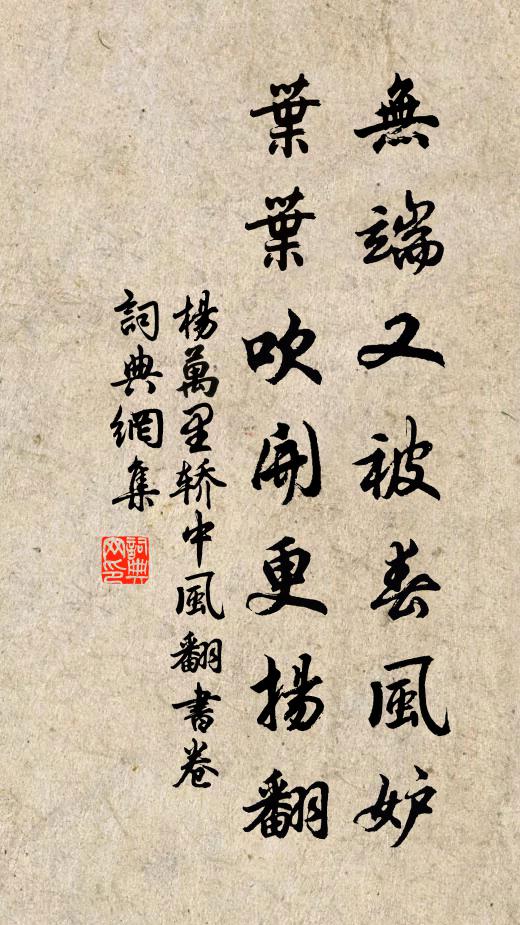 無端又被春風妒
葉葉吹開更揚翻
楊萬里轿中風翻書卷
詞典網集
詞典网印